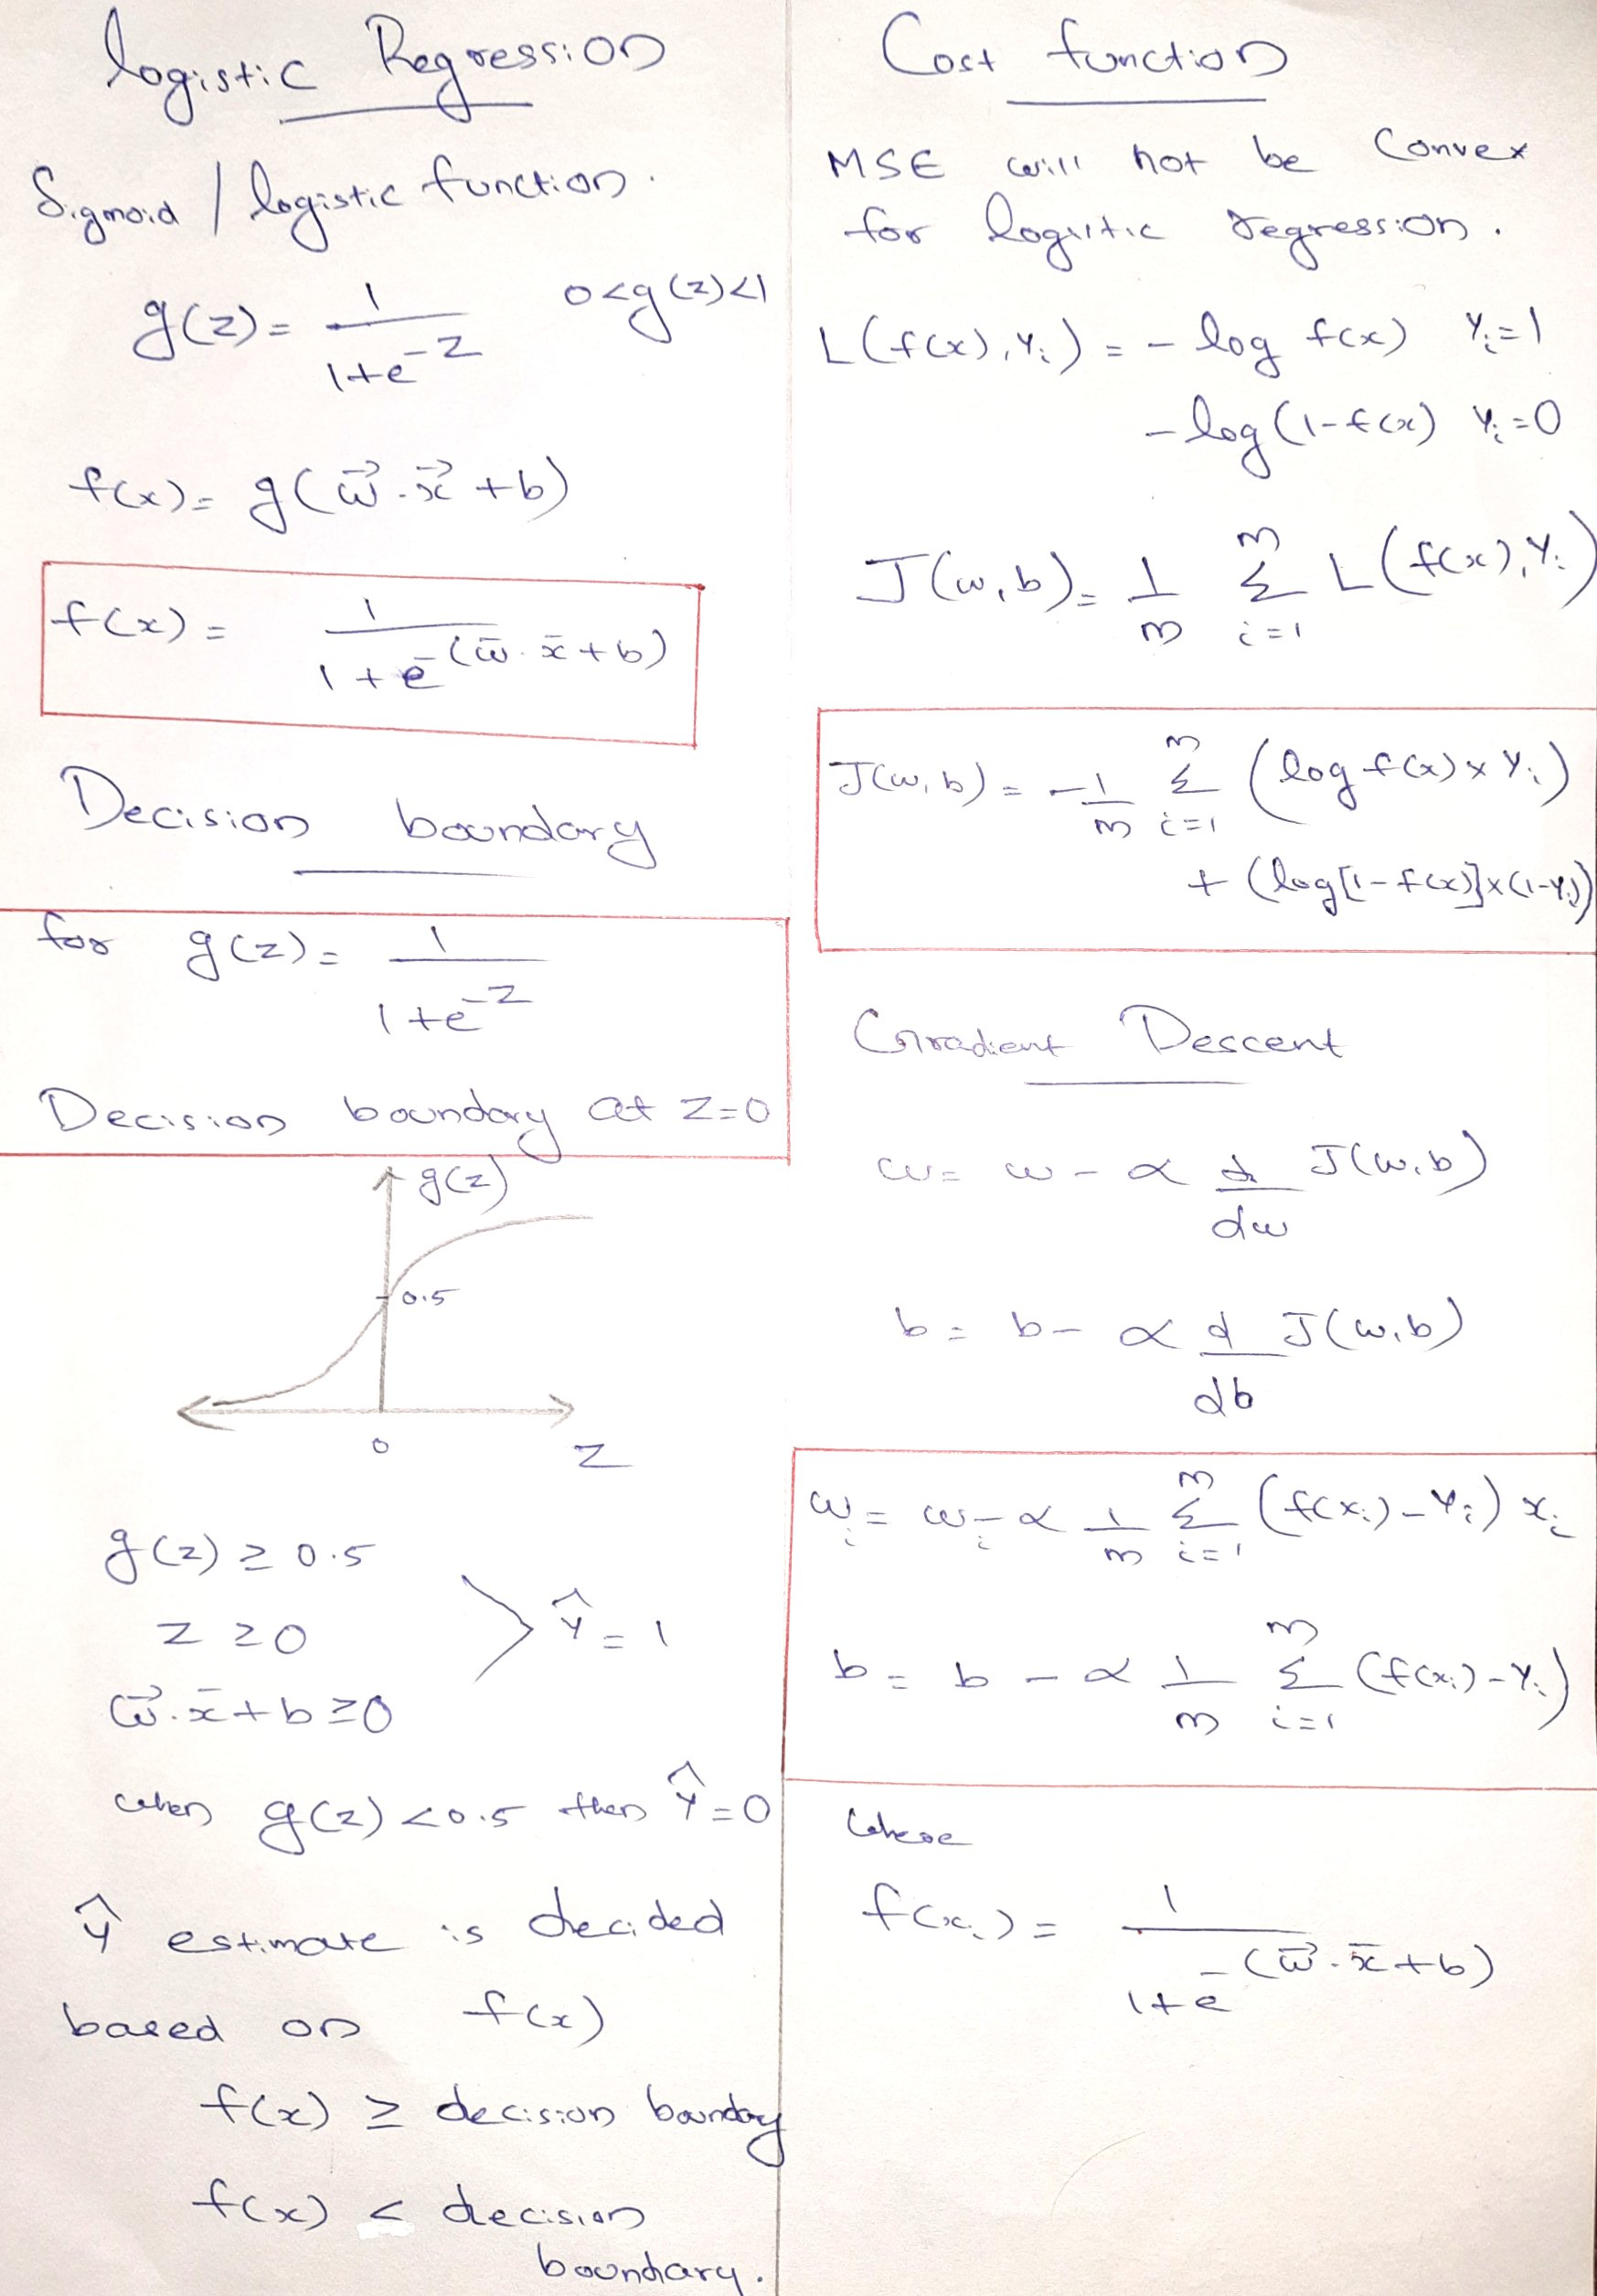 Logistic Regression
Sigmoid / logistic function.
g(z) = 1 / (1+e^-z)    0<g(z)<1
f(x) = g(w⃗.x⃗ +b)
f(x) = 1 / (1+e^-(w̄.x̄+b))
Decision boundary
for g(z) = 1 / (1+e^-z)
Decision boundary at z=0
g(z)
0.5
0    z
g(z) ≥ 0.5
z ≥0
w⃗.x̄+b≥0
ŷ = 1
when g(z) <0.5 then ŷ=0
ŷ estimate is decided
based on f(x)
f(x) ≥ decision boundary
f(x) < decision
boundary.
Cost function
MSE will not be Convex
for logistic regression.
L(f(x), Yi) = - log f(x)  Yi=1
-log(1-f(x)  Yi=0
J(w,b) = 1/m Σ_{i=1}^{m} L(f(x), Yi)
J(w,b) = -1/m Σ_{i=1}^{m} (log f(x) x Yi)
+ (log[1-f(x)]x(1-Yi))
Gradient Descent
w = w - α d/dw J(w,b)
b = b - α d/db J(w,b)
wi = wi - α 1/m Σ_{i=1}^{m} (f(xi) - Yi) xi
b = b - α 1/m Σ_{i=1}^{m} (f(xi) - Yi)
where
f(xi) = 1 / (1+e^-(w⃗.x̄+b))